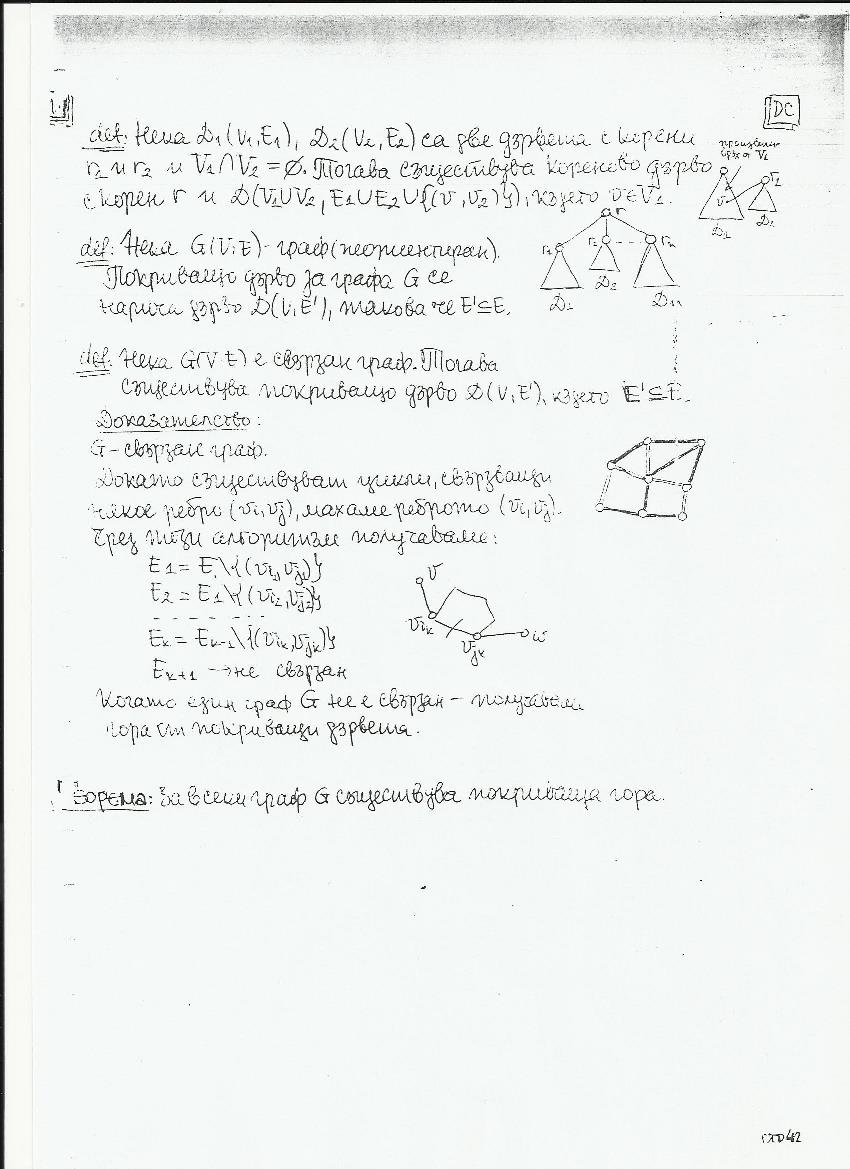 DC
def: Нека D₁(V₁,E₁), D₂(V₂,E₂) са две дървета с корени
r₁ и r₂ и V₁∩V₂ = ∅. Тогава съществува кореново дърво
с корен r и D(V₁∪V₂, E₁∪E₂∪{(v, v₂)}), където v∈V₁.
от V₁
v r₂
D₁ D₂
def: Нека G(V,E) - граф (неориентиран).
Покриващо дърво за графа G се
нарича дърво D(V,E'), такова че E'⊆E.
r
r₁ r₂ rₙ
D₁ D₂ Dₙ
def: Нека G(V E) е свързан граф. Тогава
съществува покриващо дърво D(V,E'), където E'⊆E.
Доказателство:
G - свързан граф.
Докато съществуват цикли, свързващи
някое ребро (vi,vj), махаме реброто (vi,vj).
Чрез този алгоритъм получаваме:
E₁ = E\{(vi₁,vj₁)}
E₂ = E₁\{(vi₂,vj₂)}
- - - - - - - -
Eₖ = Eₖ₋₁\{(viₖ,vjₖ)}
Eₖ₊₁ → не свързан
v
viₖ
vjₖ
w
Когато един граф G не е свързан - получавам
гора от покриващи дървета.
Теорема: За всеки граф G съществува покриваща гора.